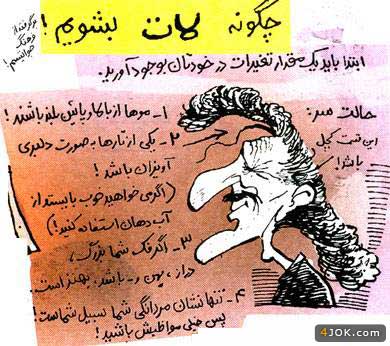 چگونه لات بشویم!
برگرفته از
فرهنگ
ابتدا باید یک مقدار تغییرات در خودتان بوجود آورید.
حالت سر:
۱- موها از بالا و پائین بلند باشند!
۲- یکی از تارها به صورت دلبری
آویزان باشد!
(اگر می خواهید خوب بایستد از
آب دهان استفاده کنید!)
۳- اگر فک شما بزرگ،
دراز، پهن و.. باشد، بهتر است.
۴- تنها نشان مردانگی شما سبیل شماست!
پس خیلی مواظبش باشید!
این قسمت کچل
باشد!
4JOK.com